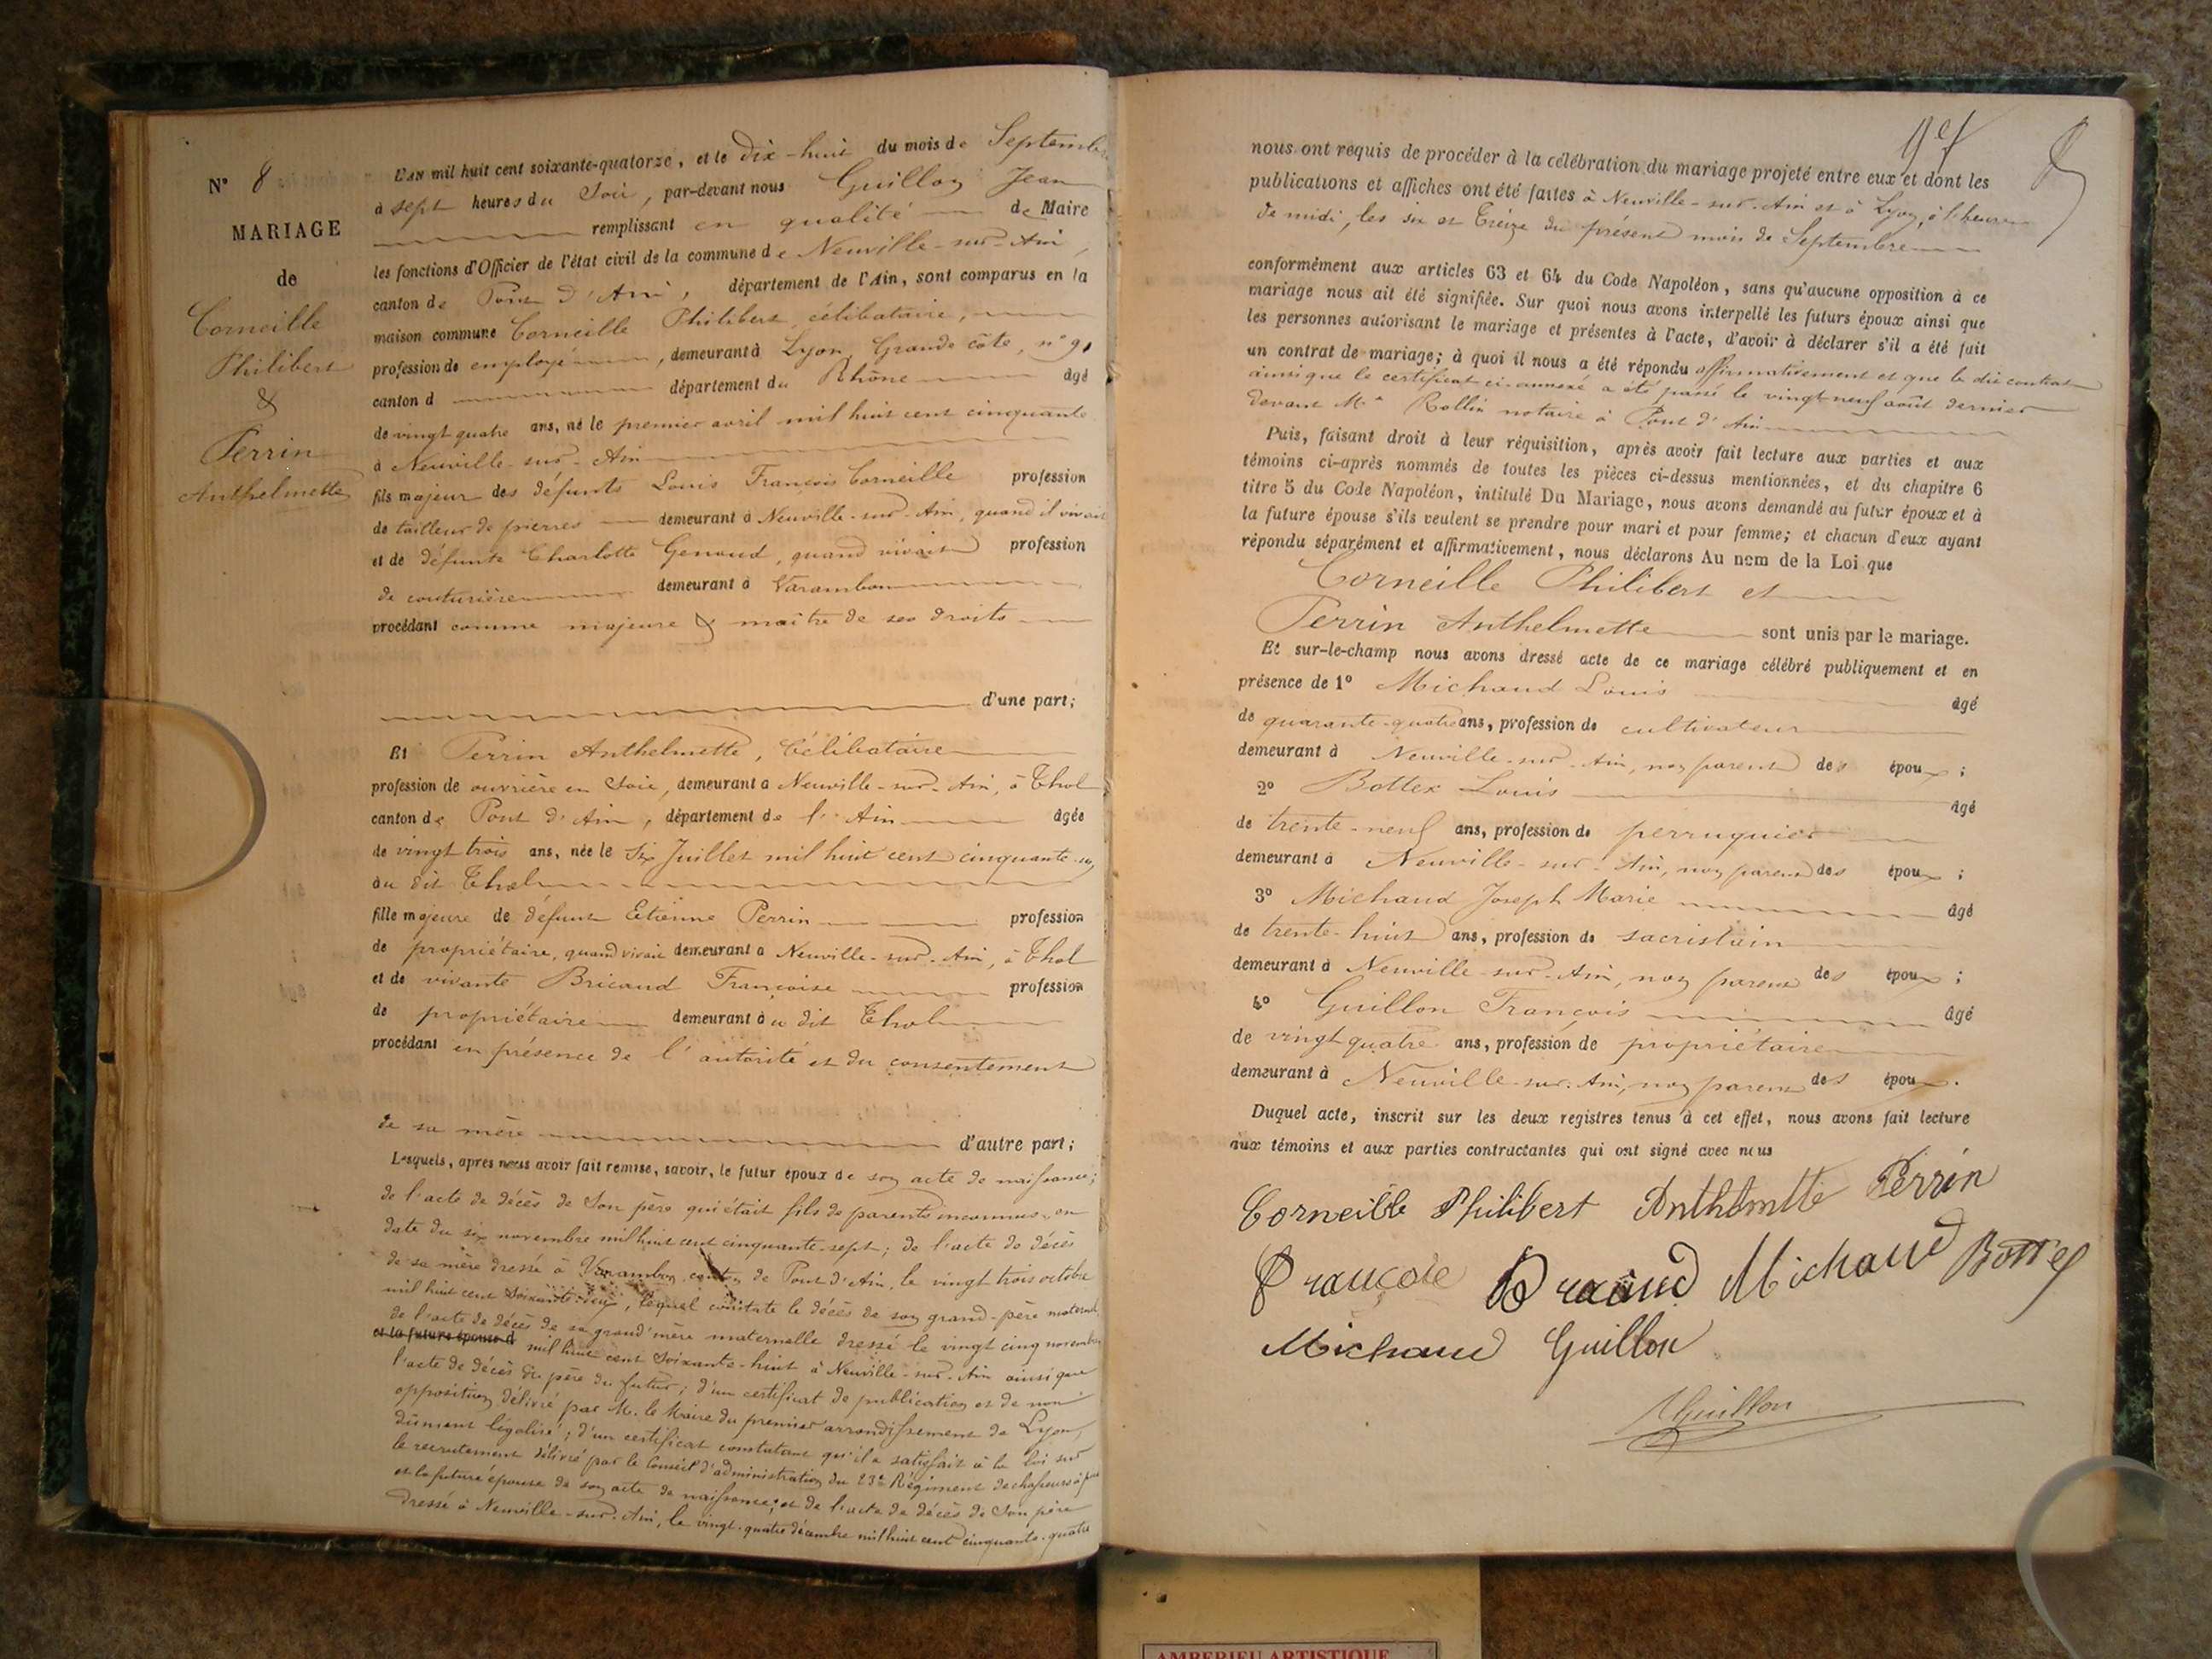 N° 8
MARIAGE
de
Corneille
Philibert
&
Perrin
Anthelmette
L'AN mil huit cent soixante-quatorze, et le dix-huit du mois de Septembre
à sept heures du Soir, par-devant nous Guillon Jean
remplissant en qualité de Maire
les fonctions d'Officier de l'état civil de la commune de Neuville-sur-Ain,
canton de Pont d'Ain, département de l'Ain, sont comparus en la
maison commune Corneille Philibert, célibataire,
profession de employé, demeurant à Lyon, Grande côte, n° 9,
canton d département du Rhône âgé
de vingt quatre ans, né le premier avril mil huit cent cinquante
à Neuville-sur-Ain
fils majeur des défunts Louis François Corneille profession
de tailleur de pierres demeurant à Neuville-sur-Ain, quand il vivait
et de défunte Charlotte Genoud, quand vivait profession
de couturière demeurant à Varambon
procédant comme majeure & maître de ses droits
d'une part;
Et Perrin Anthelmette, Célibataire
profession de ouvrière en Soie, demeurant à Neuville-sur-Ain, à Thol
canton de Pont d'Ain, département de l'Ain âgée
de vingt trois ans, née le Six Juillet mil huit cent cinquante-un
au dit Thol
fille majeure de défunt Etienne Perrin profession
de propriétaire, quand vivait demeurant à Neuville-sur-Ain, à Thol
et de vivante Bricaud Françoise profession
de propriétaire demeurant au dit Thol
procédant en présence de l'autorité et du consentement
de sa mère d'autre part;
Lesquels, après nous avoir fait remise, savoir, le futur époux de son acte de naissance;
de l'acte de décès de Son père qui était fils de parents inconnus, en
date du six novembre mil huit cent cinquante-sept; de l'acte de décès
de sa mère dressé à Varambon canton de Pont d'Ain, le vingt trois octobre
mil huit cent Soixante, lequel constate le décès de son grand-père maternel
de l'acte de décès de sa grand'mère maternelle dressé le vingt cinq novembre
et la future épouse d mil huit cent Soixante-huit à Neuville-sur-Ain ainsi que
l'acte de décès du père du futur; d'un certificat de publication et de non
opposition délivré par M. le Maire du premier arrondissement de Lyon,
dûment légalisé; d'un certificat constatant qu'il a satisfait à la loi sur
le recrutement délivré par le Conseil d'administration du 23e Régiment de chasseurs à
et la future épouse de son acte de naissance; et de l'acte de décès de Son père
dressé à Neuville-sur-Ain, le vingt-quatre décembre mil huit cent cinquante-quatre
nous ont requis de procéder à la célébration du mariage projeté entre eux et dont les
publications et affiches ont été faites à Neuville-sur-Ain et à Lyon, à l'heure
de midi, les six et treize du présent mois de Septembre
conformément aux articles 63 et 64 du Code Napoléon, sans qu'aucune opposition à ce
mariage nous ait été signifiée. Sur quoi nous avons interpellé les futurs époux ainsi que
les personnes autorisant le mariage et présentes à l'acte, d'avoir à déclarer s'il a été fait
un contrat de mariage; à quoi il nous a été répondu affirmativement et que le dit contrat
ainsi que le certificat ci-annexé a été passé le vingt neuf août dernier
devant Me Rollin notaire à Pont d'Ain
Puis, faisant droit à leur réquisition, après avoir fait lecture aux parties et aux
témoins ci-après nommés de toutes les pièces ci-dessus mentionnées, et du chapitre 6
titre 5 du Code Napoléon, intitulé Du Mariage, nous avons demandé au futur époux et à
la future épouse s'ils veulent se prendre pour mari et pour femme; et chacun d'eux ayant
répondu séparément et affirmativement, nous déclarons Au nom de la Loi que
Corneille Philibert et
Perrin Anthelmette sont unis par le mariage.
Et sur-le-champ nous avons dressé acte de ce mariage célébré publiquement et en
présence de 1° Michaud Louis âgé
de quarante-quatre ans, profession de cultivateur
demeurant à Neuville-sur-Ain, non parent des époux;
2° Bottex Louis âgé
de trente-neuf ans, profession de perruquier
demeurant à Neuville-sur-Ain, non parent des époux;
3° Michaud Joseph Marie âgé
de trente-huit ans, profession de sacristain
demeurant à Neuville-sur-Ain, non parent des époux;
4° Guillon François âgé
de vingt quatre ans, profession de propriétaire
demeurant à Neuville-sur-Ain, non parent des époux.
Duquel acte, inscrit sur les deux registres tenus à cet effet, nous avons fait lecture
aux témoins et aux parties contractantes qui ont signé avec nous
Corneille Philibert Anthelmette Perrin
Michaud Bottex
Michaud Guillon
Guillon
AMBERIEU ARTISTIQUE